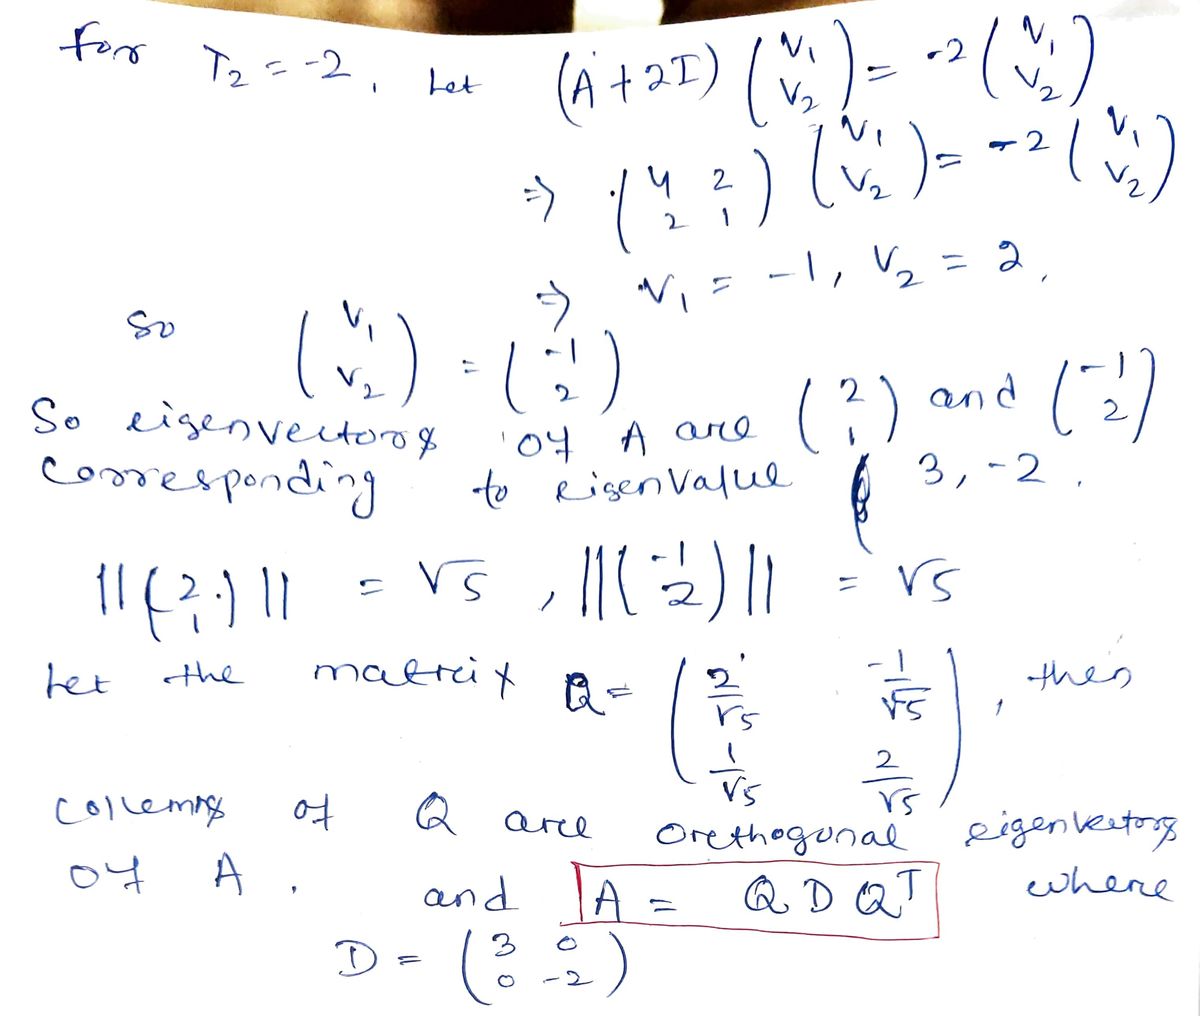 for T₂ = -2, Let (A + 2I) (v₁ v₂) = -2 (v₁ v₂)
⇒ (4 2 2 1) (v₁ v₂) = -2 (v₁ v₂)
⇒ v₁ = -1, v₂ = 2,
so (v₁ v₂) = (-1 2)
So eigenvectors of A are (2 1) and (-1 2)
corresponding to eigenvalue 3, -2.
||(2 1)|| = √5, ||(-1 2)|| = √5
Let the matrix Q = (2/√5 -1/√5 1/√5 2/√5), then
columns of Q are orthogonal eigenvectors
of A. and A = Q D Qᵀ where
D = (3 0 0 -2)